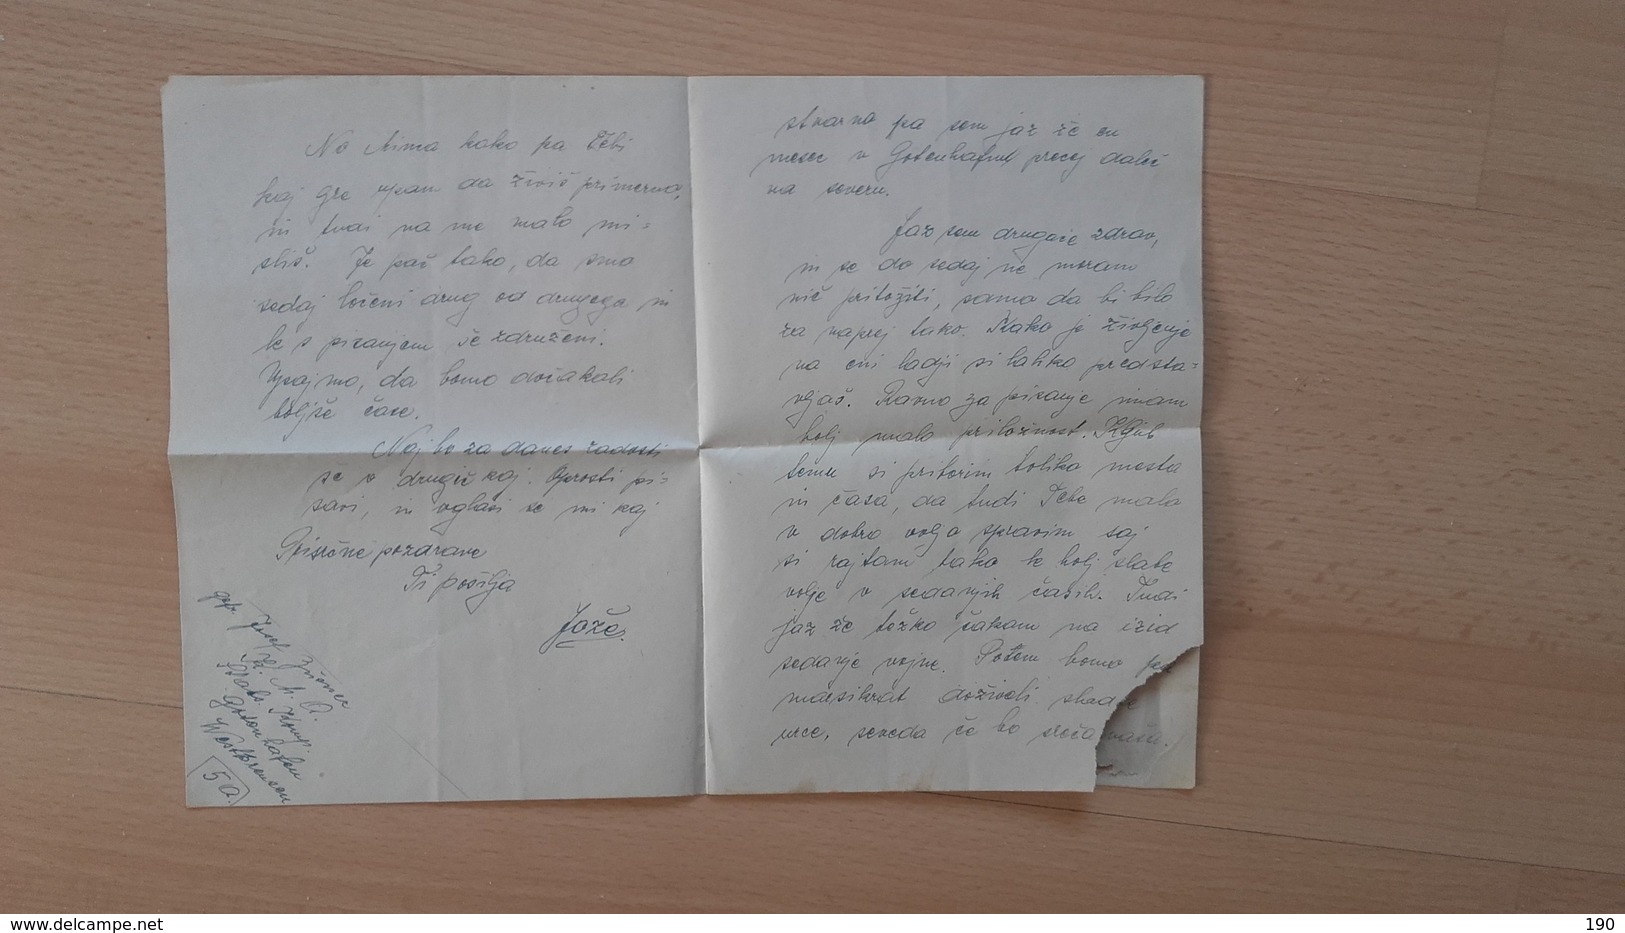 No Mima kako pa Tebi
kaj gre upam da živiš primerno,
in tudi na me malo mi=
sliš. Je pač tako, da smo
sedaj ločeni drug od drugega in
le s pisanjem še združeni.
Upajmo, da bomo dočakali
boljše čase.
Naj bo za danes zadosti
se v drugič kaj. Oprosti pi=
savi, in oglasi se mi kaj
Prisrčne pozdrave
Ti pošilja
Jože.
gefr. Josef
A. O.
Komp.
Gotenhafen
Westpreusen
5a.
stvarno pa sem jaz že en
mesec v Gotenhafnu precej daleč
na severu.
Jaz sem drugače zdrav,
in se do sedaj ne moram
nič pritožiti, samo da bi bilo
za naprej tako. Kako je življenje
na eni ladji si lahko predsta=
vljaš. Ravno za pisanje imam
bolj malo priložnost. Kljub
temu si pritorim toliko mesta
in časa, da tudi Tebe malo
v dobro voljo spravim saj
si rajtam tako le bolj slabe
volje v sedanjih časih. Tudi
jaz že težko čakam na izid
sedanje vojne. Potem bomo pa
marsikrat doživeli sladke
urce, seveda če bo sreča naša.